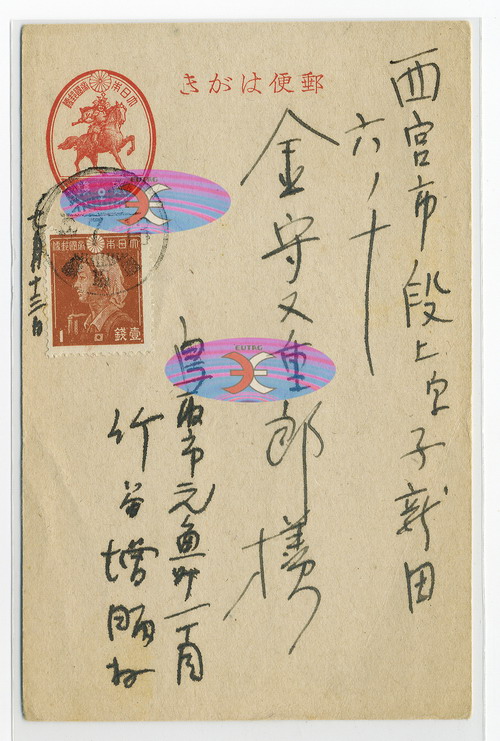 郵便はがき
大日本帝國郵便
西宮市段上字子新田
六ノ十
金守又重郎様
七月十三日
大日本帝國郵便
壹錢
1
CUTEG
CUTEG
鳥取市元魚町一丁目
竹谷増